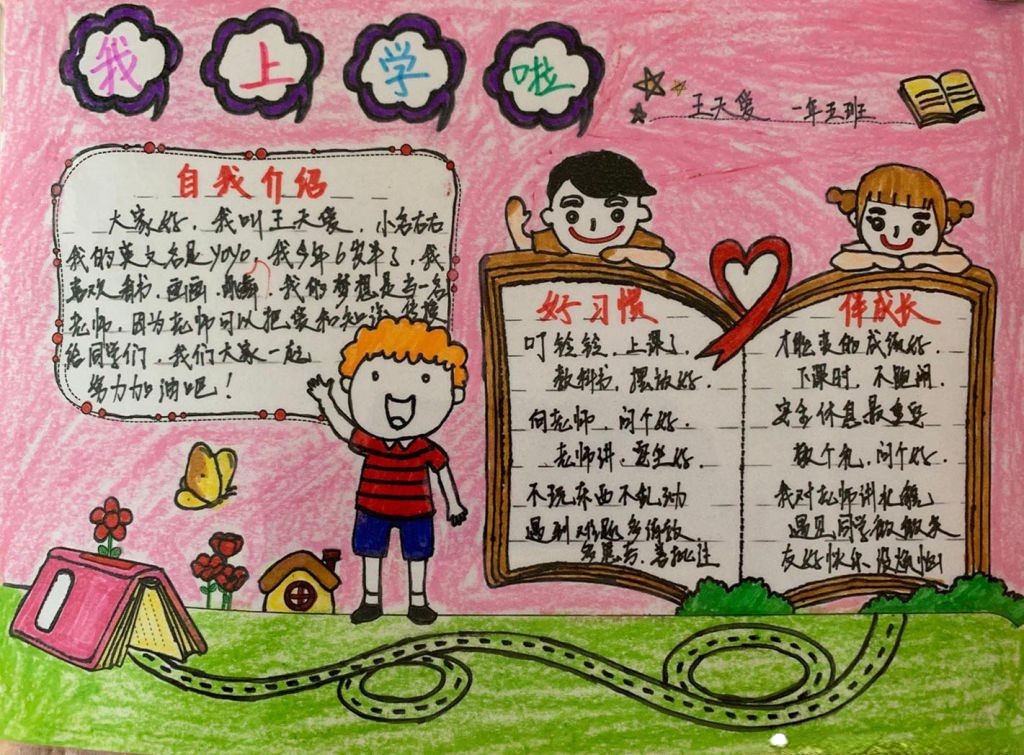 我上学啦
王天爱 一年五班
自我介绍
大家好，我叫王天爱，小名右右
我的英文名是yoyo，我今年6岁半了，我
喜欢看书，画画，跳舞，我的梦想是当一名
老师，因为老师可以把爱和知识传授
给同学们，我们大家一起
努力加油吧！
好习惯
叮铃铃，上课了，
教科书，摆放好，
向老师，问个好，
老师讲，要坐好，
不玩东西不乱动
遇到难题多请教
多思考，善
伴成长
才能变的成绩好，
下课时，不跑闹，
安全休息最重要
敬个礼，问个好，
我对老师讲礼貌
遇见同学微微笑
友好快乐没烦恼